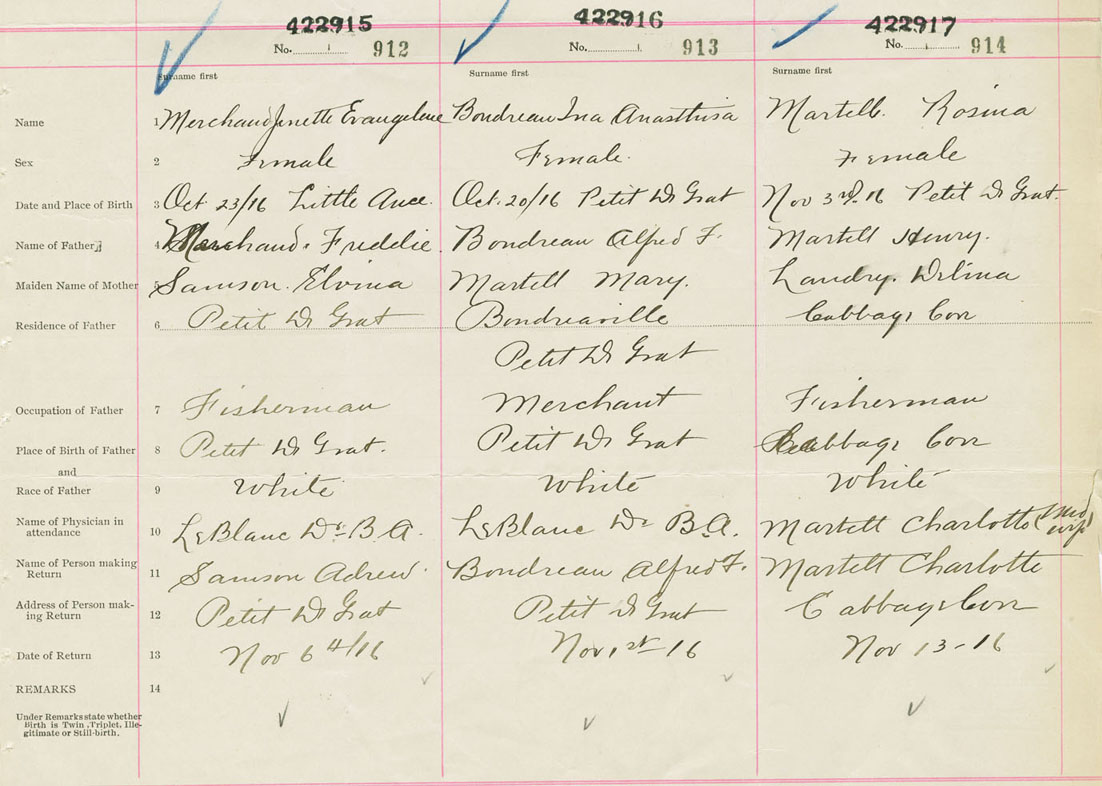 422915 422916 422917
No. 912 No. 913 No. 914
Surname first Surname first Surname first
Name 1 Merchand Jenette Evangeline Bondreau Ina Anasthisa Martell. Rosina
Sex 2 Female Female. Female
Date and Place of Birth 3 Oct 23/16 Little Ance. Oct. 20/16 Petit De Grat Nov 3rd. 16 Petit De Grat.
Name of Father 4 Merchand. Freddie. Bondreau Alfred F. Martell Henry.
Maiden Name of Mother 5 Samson. Elvina Martell Mary. Landry. Delina
Residence of Father 6 Petit De Grat Bondreauville Cabbage Cove
Petit De Grat
Occupation of Father 7 Fisherman Merchant Fisherman
Place of Birth of Father 8 Petit De Grat. Petit De Grat Cabbage Cove
and
Race of Father 9 White White White
Name of Physician in
attendance 10 LeBlanc Dr. B A. LeBlanc Dr B.A. Martell Charlotte (Mid wife)
Name of Person making
Return 11 Samson Adrew. Bondreau Alfred F. Martell Charlotte
Address of Person mak-
ing Return 12 Petit De Grat Petit De Grat Cabbage Cove
Date of Return 13 Nov 6th/16 Nov 1st 16 Nov 13-16
REMARKS 14
Under Remarks state whether
Birth is Twin, Triplet, Ille-
gitimate or Still-birth.